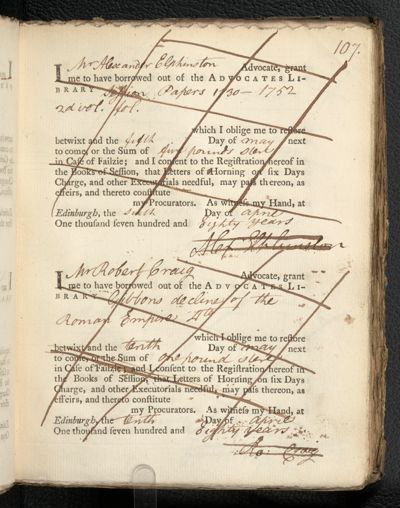 107.
I Mr Alexander Elphinston Advocate, grant
me to have borrowed out of the ADVOCATES LI-
BRARY Session Papers 1730-1752
2d vol. fol.
which I oblige me to restore
betwixt and the fifth Day of may next
to come, or the Sum of five pounds sterl
in Case of Failzie; and I consent to the Registration hereof in
the Books of Session, that Letters of Horning on six Days
Charge, and other Executorials needful, may pass thereon, as
effeirs, and thereto constitute
my Procurators. As witness my Hand, at
Edinburgh, the sixth Day of april
One thousand seven hundred and Eighty Years
Alex Elphinston
I Mr Robert Craig Advocate, grant
me to have borrowed out of the ADVOCATES LI-
BRARY Gibbons decline of the
Roman Empire 4to
which I oblige me to restore
betwixt and the tenth Day of may next
to come, or the Sum of one pound sterl
in Case of Failzie; and I consent to the Registration hereof in
the Books of Session, that Letters of Horning on six Days
Charge, and other Executorials needful, may pass thereon, as
effeirs, and thereto constitute
my Procurators. As witness my Hand, at
Edinburgh, the tenth Day of april
One thousand seven hundred and Eighty Years
Ro: Craig